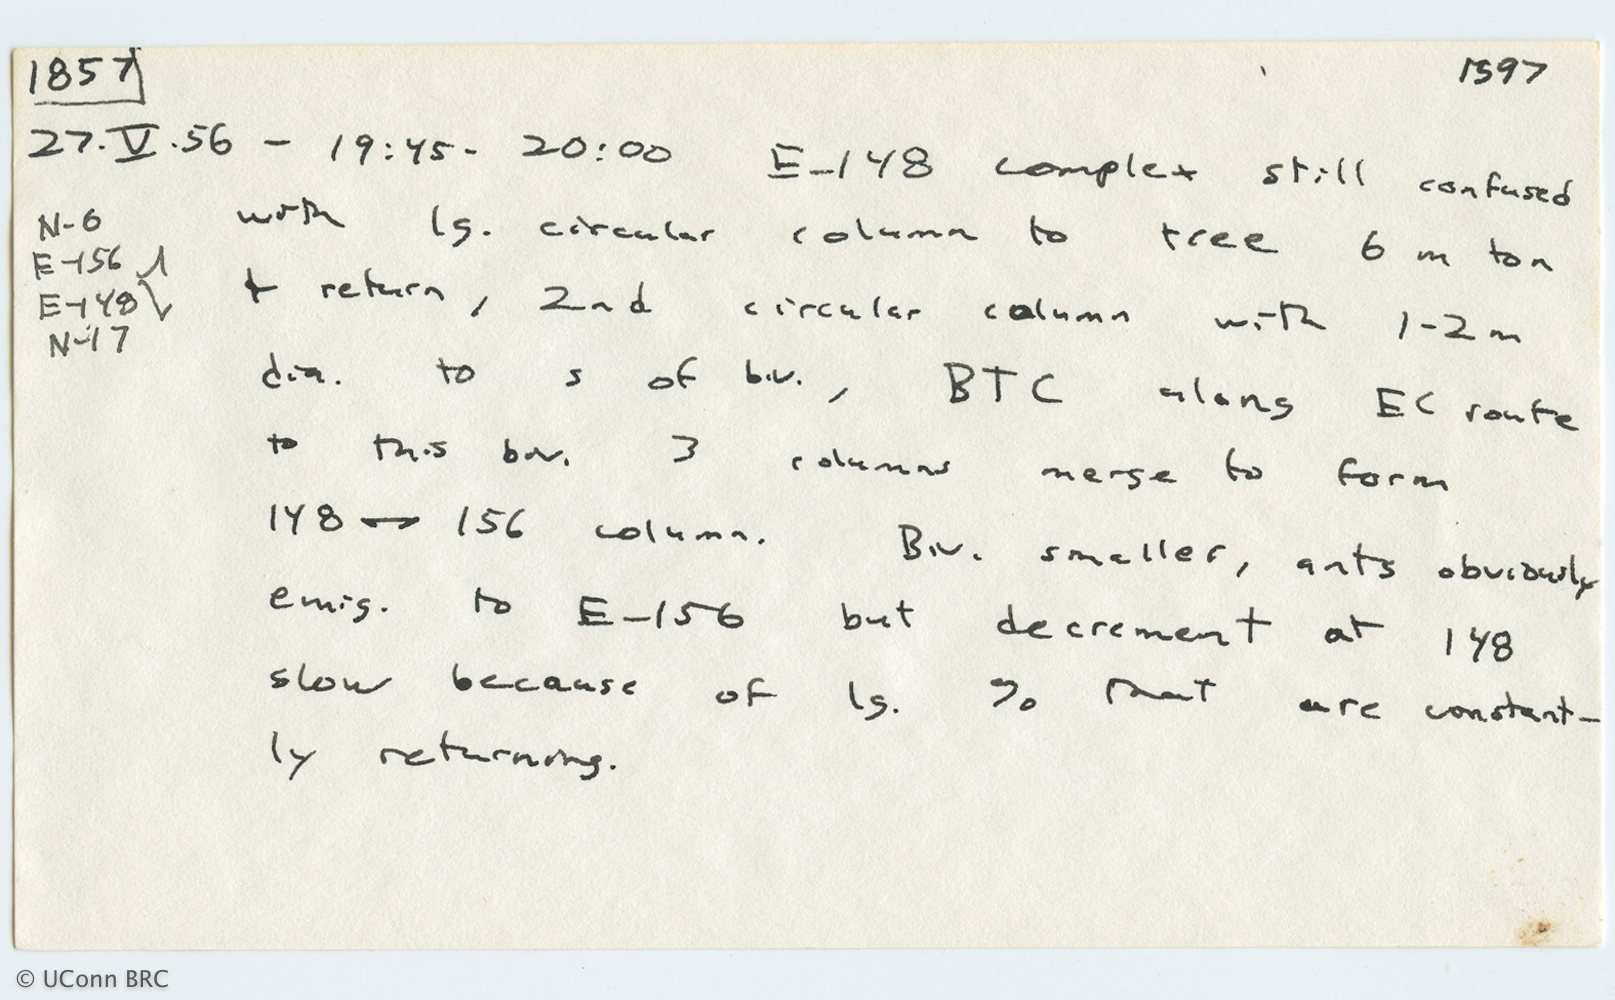 1857 1597
27.V.56 - 19:45- 20:00 E-148 complex still confused
N-6 with lg. circular column to tree 6 m ton
E-156
E-148 + return, 2nd circular column with 1-2m
N-17
dia. to s of biv., BTC along EC route
to this biv. 3 columns merge to form
148 ↔ 156 column. Biv. smaller, ants obviously
emig. to E-156 but decrement at 148
slow because of lg. % that are constant-
ly returning.
© UConn BRC